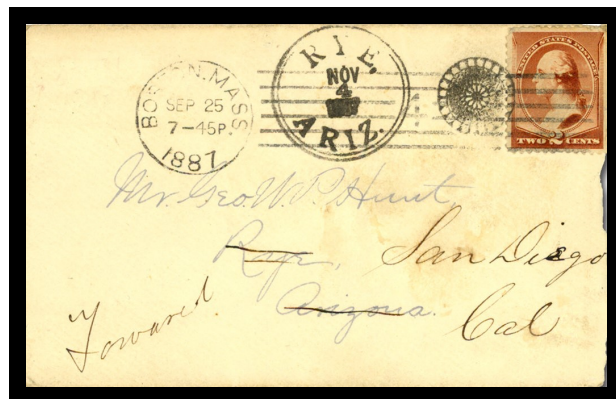 BOSTON.MASS.
SEP 25
7-45P
1887
RYE.
NOV
4
ARIZ.
UNITED STATES POSTAGE
TWO 2 CENTS
Mr. Geo. W. P. Hunt,
Rye, San Diego
Arizona. Cal
Forward